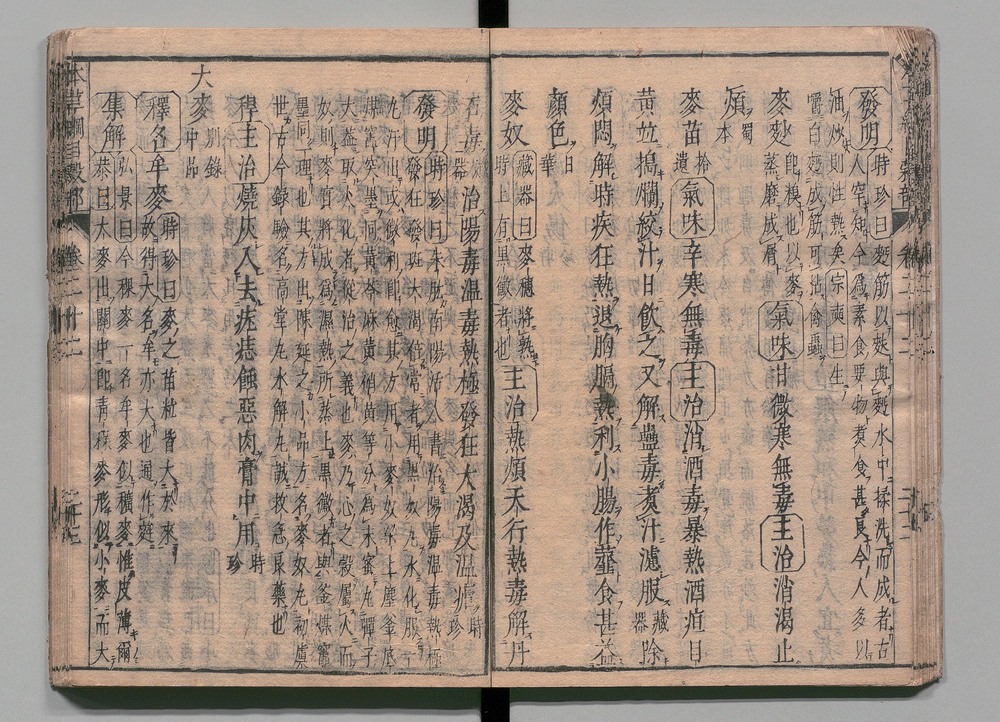 發明時珍曰麪筋以麩與麪水中揉洗而成者古
人罕知今為素食要物煮食甚良今人多以
油炒則性熱矣宗奭曰生
嚼白麪成筋可粘禽蟲
麥䴬即糗也以麥蒸磨成屑氣味甘微寒無毒主治消渴止
煩蜀本
麥苗拾遺氣味辛寒無毒主治消酒毒暴熱酒疸目
黃竝搗爛絞汁日飲之又解蠱毒煮汁濾服藏器除
煩悶解時疾狂熱退胸膈熱利小腸作虀食甚益
顏色日華
麥奴藏器曰麥穗將熟時上有黑黴者也主治熱煩天行熱毒解丹
石毒藏器治陽毒溫毒熱極發狂大渴及溫瘧時珍
發明時珍曰朱肱南陽活人書治陽毒溫毒熱極
發狂發斑大渴倍常
用小麥奴梁上塵釜底
煤竈突墨同黃芩麻黃硝黃等分為末蜜丸彈子
大蓋取火化者從治之義也麥乃心之穀屬火而
奴則麥實將成為濕熱所蒸上黑黴者與釜煤竈
墨同一理也其方出陳延之小品方名麥奴丸初虞
世古今錄驗名高堂丸水解丸誠救急良藥也
稈主治燒灰入去疣痣蝕惡肉膏中用時珍
大麥別錄中品
釋名牟麥時珍曰麥之苗粒皆大於來
故得大名牟亦大也通作䴢
集解弘景曰今稞麥一名牟麥似穬麥惟皮薄爾
恭曰大麥出關中即青稞麥形似小麥而大
本草綱目穀部
卷二十二